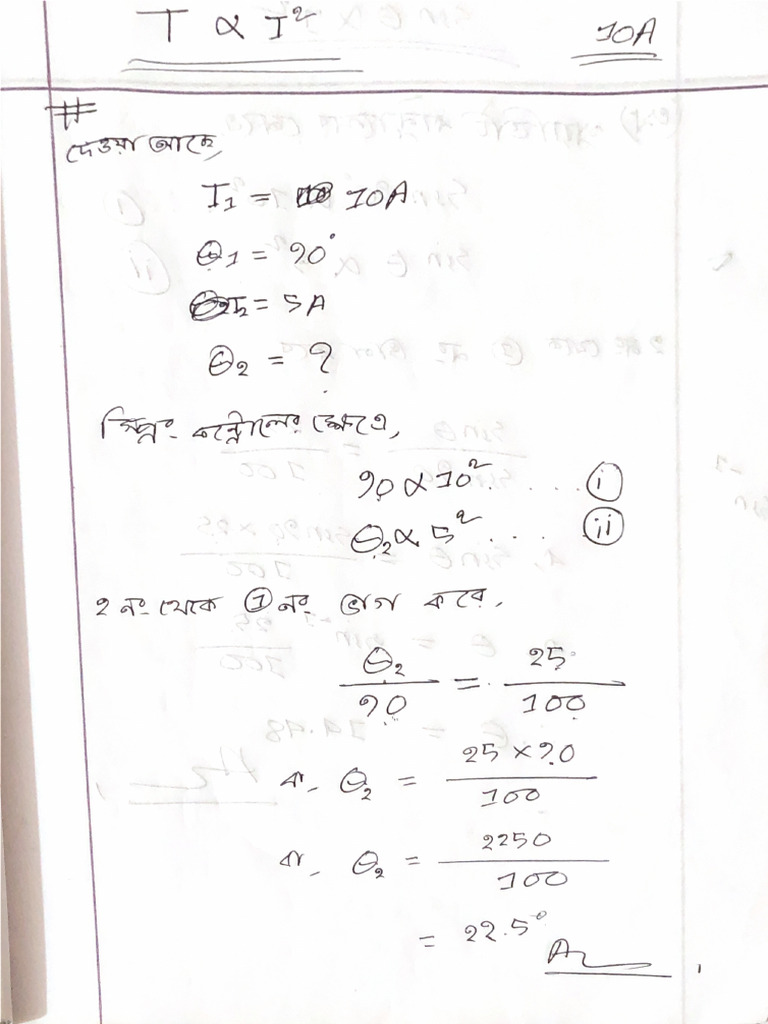 T ∝ I²
10A
#
দেওয়া আছে,
I₁ = 10A
θ₁ = 90°
I₂ = 5A
θ₂ = ?
স্প্রিং কন্ট্রোলের ক্ষেত্রে,
90 ∝ 10² ... (i)
θ₂ ∝ 5² ... (ii)
২ নং থেকে ① নং ভাগ করে,
θ₂/90 = 25/100
বা, θ₂ = 25 × 90/100
বা, θ₂ = 2250/100
= 22.5°
Ans